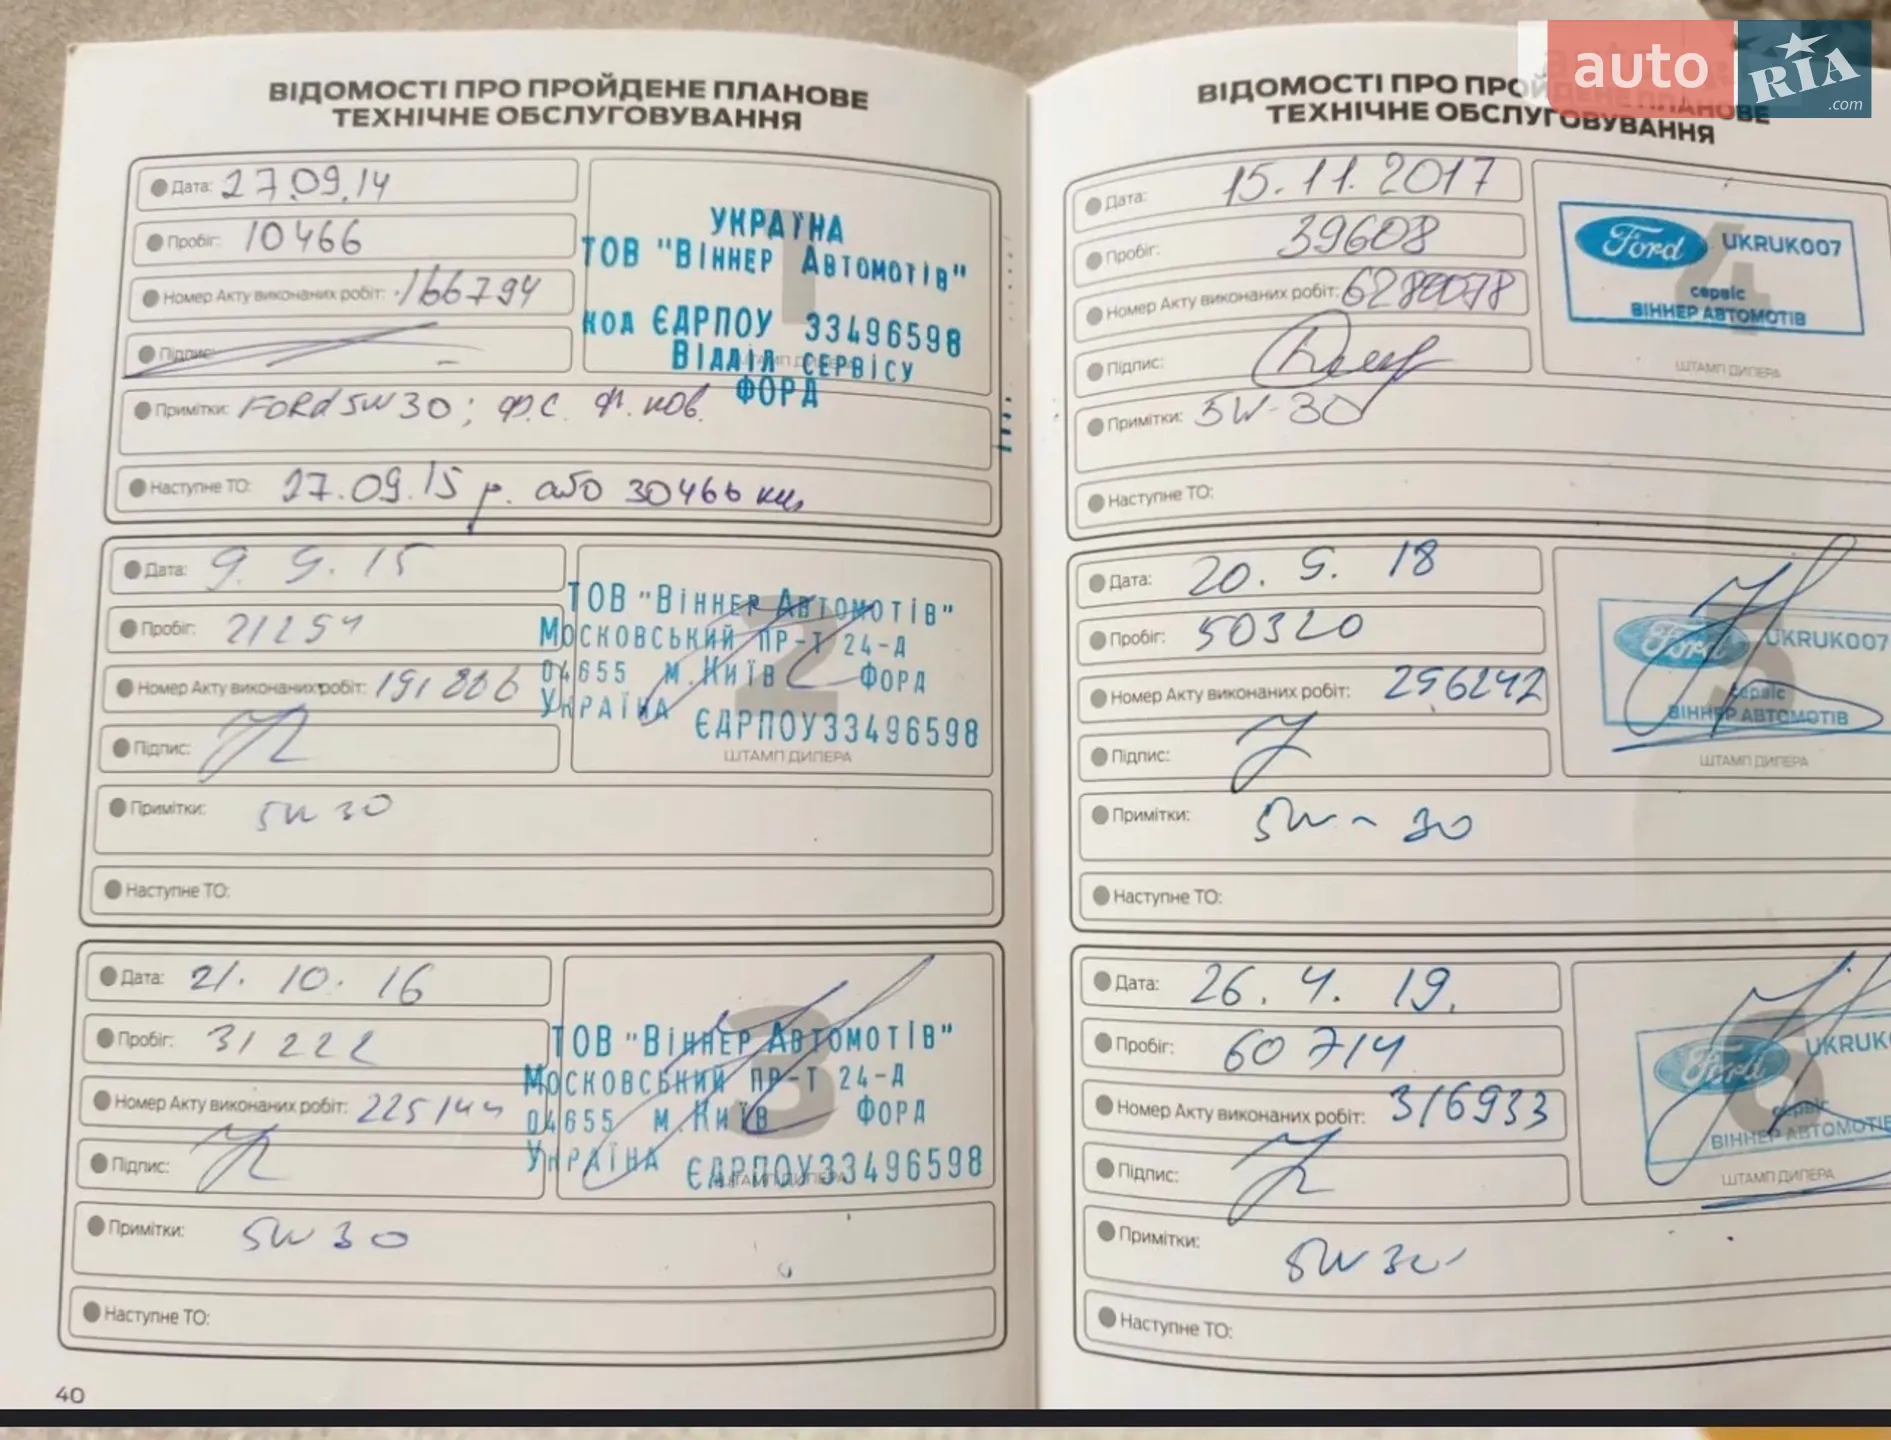 ВІДОМОСТІ ПРО ПРОЙДЕНЕ ПЛАНОВЕ
ТЕХНІЧНЕ ОБСЛУГОВУВАННЯ
Дата: 27.09.14
Пробіг: 10466
Номер Акту виконаних робіт: 166794
Підпис:
Примітки: FORd 5W30; ф.с. ф. нов.
Наступне ТО: 27.09.15 р. або 30466 км
УКРАЇНА
ТОВ "Віннер Автомотів"
код ЄДРПОУ 33496598
Відділ сервісу
ФОРД
Дата: 9. 9. 15
Пробіг: 21251
Номер Акту виконаних робіт: 191866
Підпис:
Примітки: 5W 30
Наступне ТО:
2
ТОВ "Віннер Автомотів"
Московський пр-т 24-Д
04655 м.Київ Форд
Україна ЄДРПОУ33496598
ШТАМП ДИЛЕРА
Дата: 21. 10. 16
Пробіг: 31222
Номер Акту виконаних робіт: 225144
Підпис:
Примітки: 5W 30
Наступне ТО:
3
ТОВ "Віннер Автомотів"
Московський пр-т 24-Д
04655 м.Київ Форд
Україна ЄДРПОУ33496598
ШТАМП ДИЛЕРА
40
ВІДОМОСТІ ПРО ПРОЙДЕНЕ ПЛАНОВЕ
ТЕХНІЧНЕ ОБСЛУГОВУВАННЯ
auto RIA .com
Дата: 15.11.2017
Пробіг: 39608
Номер Акту виконаних робіт:
Підпис:
Примітки: 5W-30
Наступне ТО:
4
Ford UKRUK007
сервіс
ВІННЕР АВТОМОТІВ
ШТАМП ДИЛЕРА
Дата: 20. 9. 18
Пробіг: 50320
Номер Акту виконаних робіт: 296242
Підпис:
Примітки: 5W-30
Наступне ТО:
5
Ford UKRUK007
сервіс
ВІННЕР АВТОМОТІВ
ШТАМП ДИЛЕРА
Дата: 26. 4. 19.
Пробіг: 60714
Номер Акту виконаних робіт: 316933
Підпис:
Примітки: 5W 30
Наступне ТО:
6
Ford UKRUK
сервіс
ВІННЕР АВТОМОТІВ
ШТАМП ДИЛЕРА